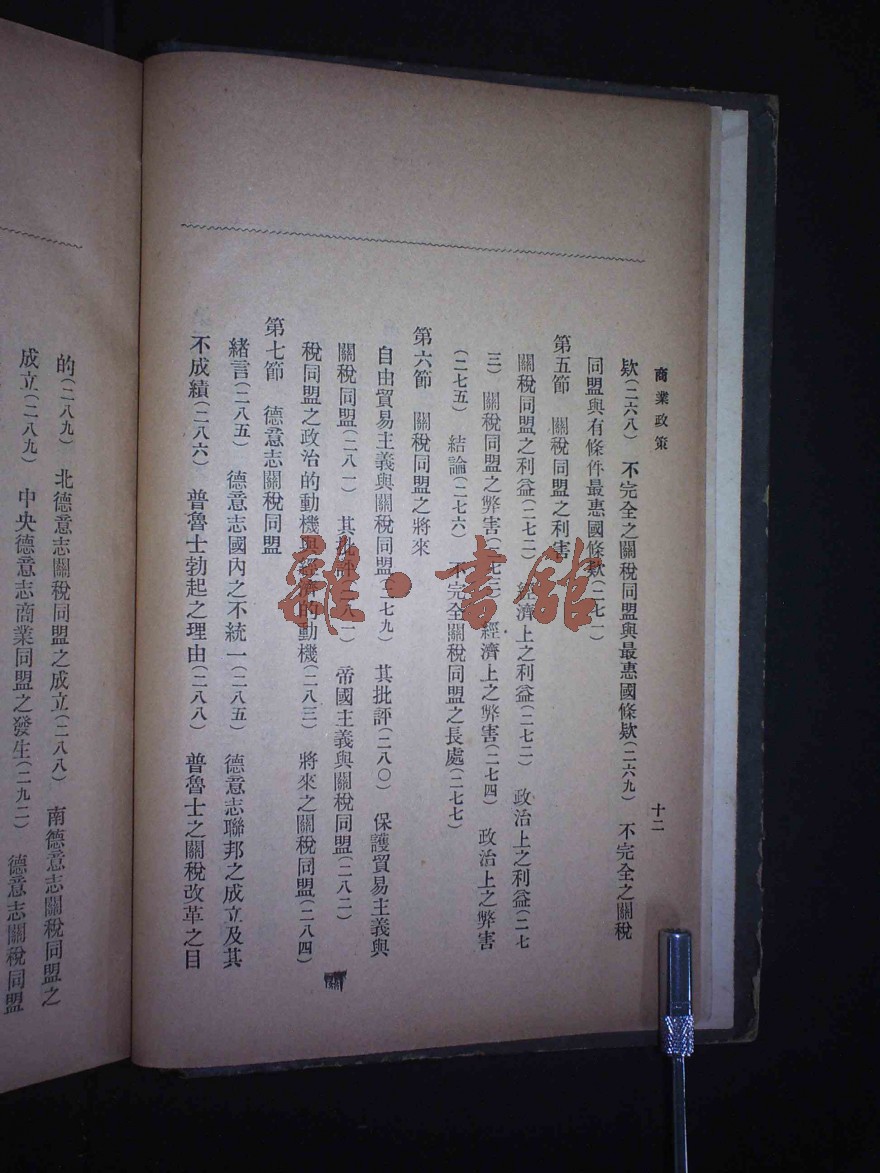 商業政策
十二
欵(二六八) 不完全之關稅同盟與最惠國條欵(二六九) 不完全之關稅
同盟與有條件最惠國條欵(二七一)
第五節 關稅同盟之利害
關稅同盟之利益(二七二) 經濟上之利益(二七二) 政治上之利益(二七
三) 關稅同盟之弊害(二七三) 經濟上之弊害(二七四) 政治上之弊害
(二七五) 結論(二七六) 不完全關稅同盟之長處(二七七)
第六節 關稅同盟之將來
自由貿易主義與關稅同盟(二七九) 其批評(二八〇) 保護貿易主義與
關稅同盟(二八一) 其批評(二八一) 帝國主義與關稅同盟(二八二) 關
稅同盟之政治的動機與經濟的動機(二八三) 將來之關稅同盟(二八四)
第七節 德意志關稅同盟
緒言(二八五) 德意志國內之不統一(二八五) 德意志聯邦之成立及其
不成績(二八六) 普魯士勃起之理由(二八八) 普魯士之關稅改革之目
的(二八九) 北德意志關稅同盟之成立(二八八) 南德意志關稅同盟之
成立(二八九) 中央德意志商業同盟之發生(二九二) 德意志關稅同盟
雜·書館